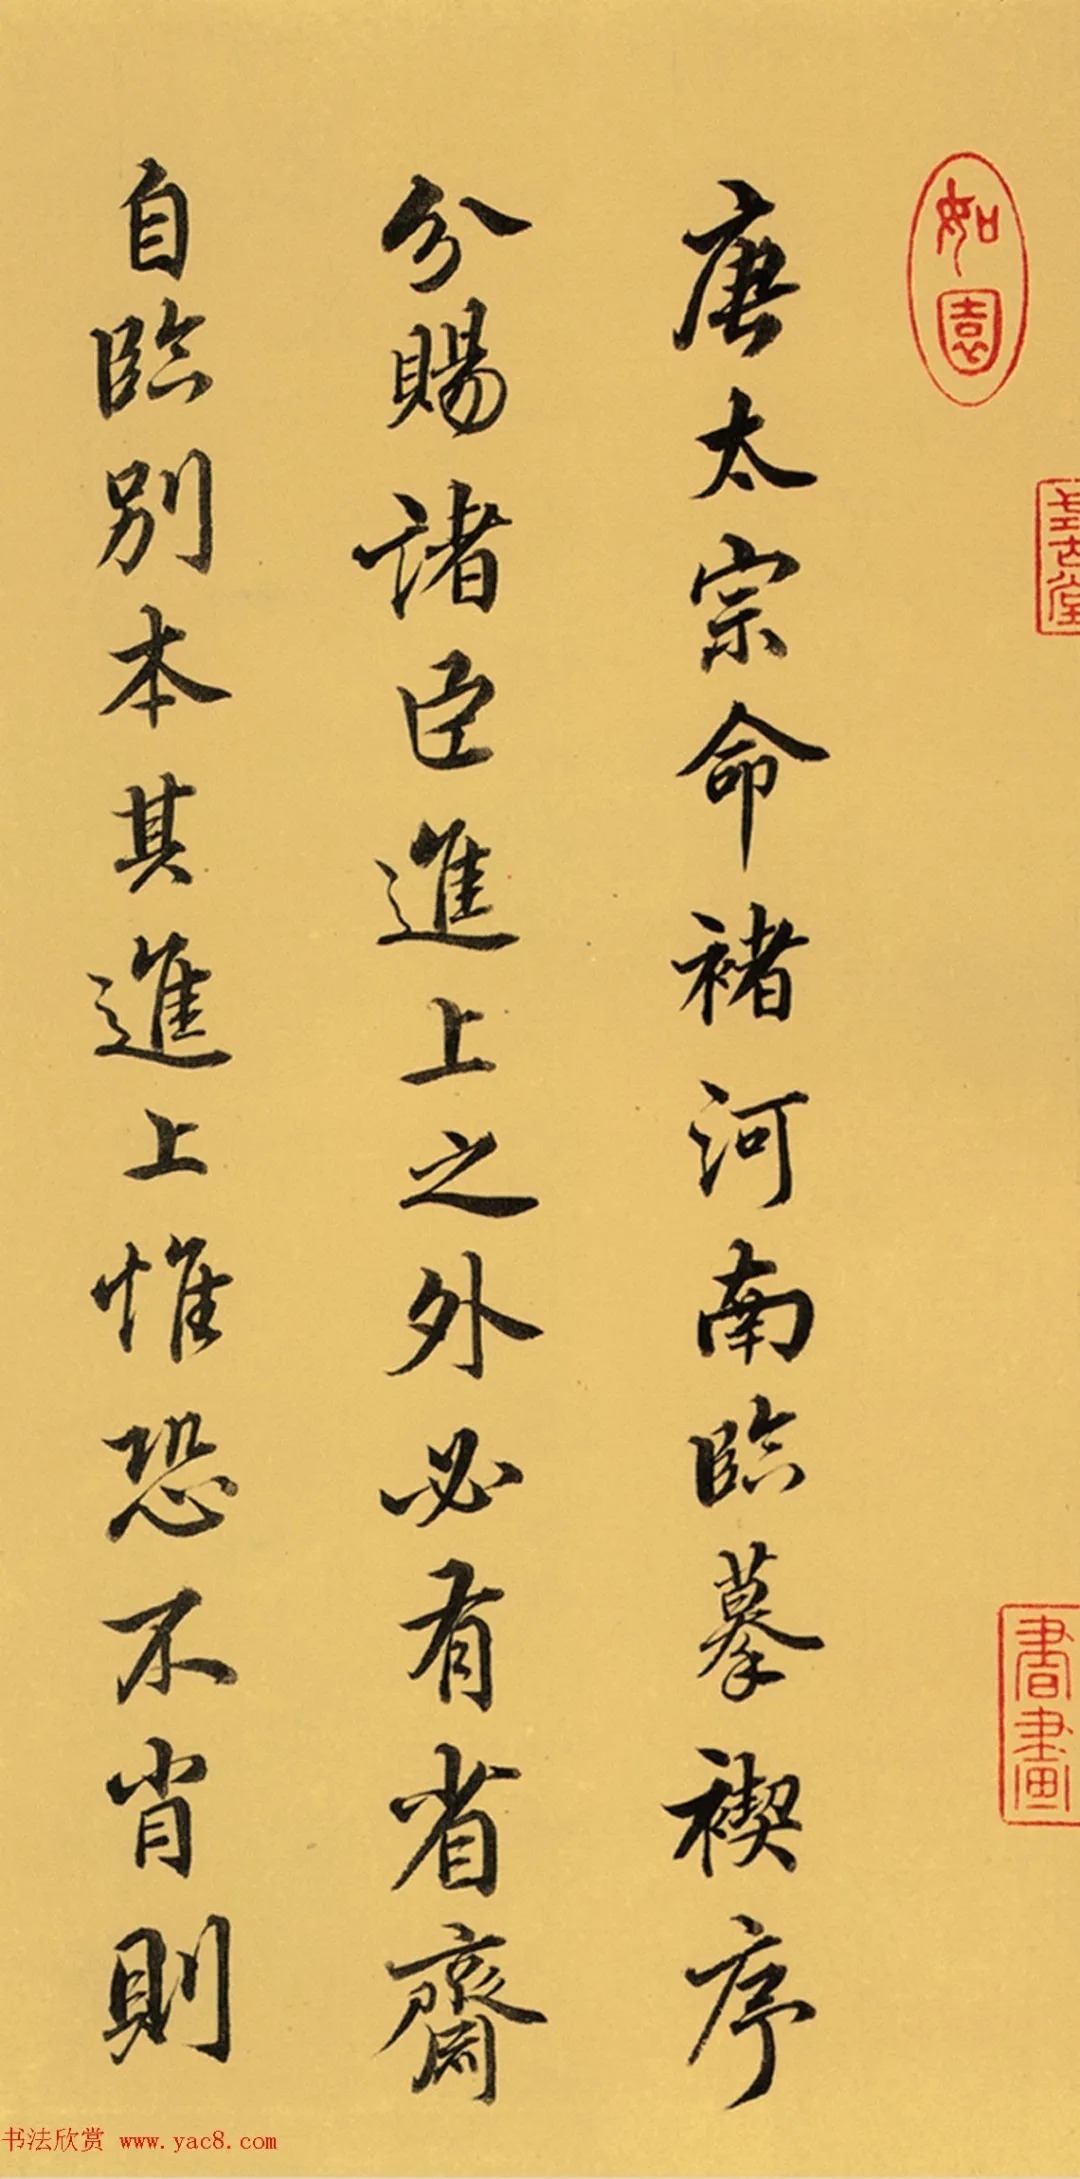 唐太宗命褚河南臨摹禊序
分賜諸臣進上之外必有省齋
自臨別本其進上惟恐不肖則
如園
書畫
书法欣赏 www.yac8.com